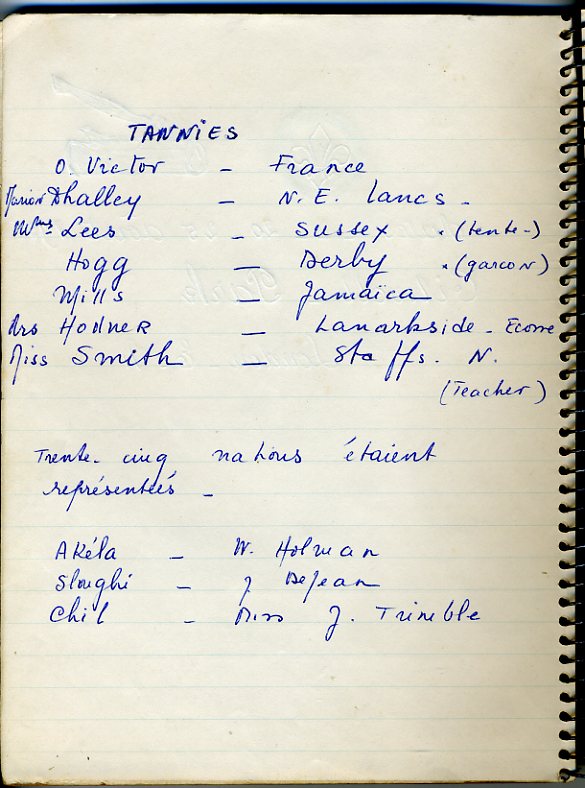 TANNIES
O. Victor - France
Marion Dhalley - N.E. Lancs -
Mmes Lees - Sussex . (tente-)
Hogg - Derby . (garcon)
Mills - Jamaïca
Mrs Hodner - Lanarkside - Ecosse
Miss Smith - Staffs. N.
(Teacher)
Trente-cinq nations étaient
représentées -
Akéla - W. Holman
Sloughi - J Dejean
Chil - Miss J. Trimble